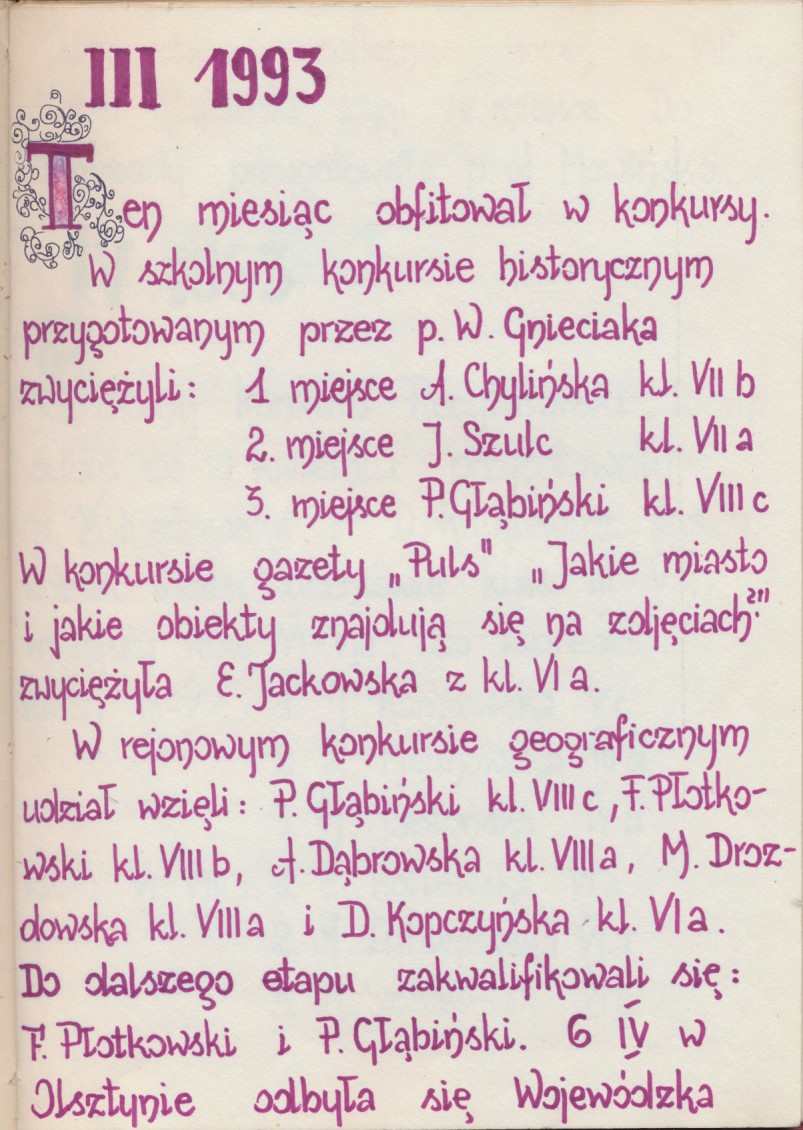 III 1993
Ten miesiąc obfitował w konkursy.
W szkolnym konkursie historycznym
przygotowanym przez p. W. Gnieciaka
zwyciężyli: 1 miejsce A. Chylińska kl. VII b
2. miejsce J. Szulc kl. VII a
3. miejsce P. Głąbiński kl. VIII c
W konkursie gazety „Puls" „Jakie miasto
i jakie obiekty znajdują się na zdjęciach?"
zwyciężyła E. Jackowska z kl. VI a.
W rejonowym konkursie geograficznym
udział wzięli: P. Głąbiński kl. VIII c, F. Płotko-
wski kl. VIII b, A. Dąbrowska kl. VIII a, M. Droz-
dowska kl. VIII a i D. Kopczyńska kl. VI a.
Do dalszego etapu zakwalifikowali się:
F. Płotkowski i P. Głąbiński. 6 IV w
Olsztynie odbyła się Wojewódzka